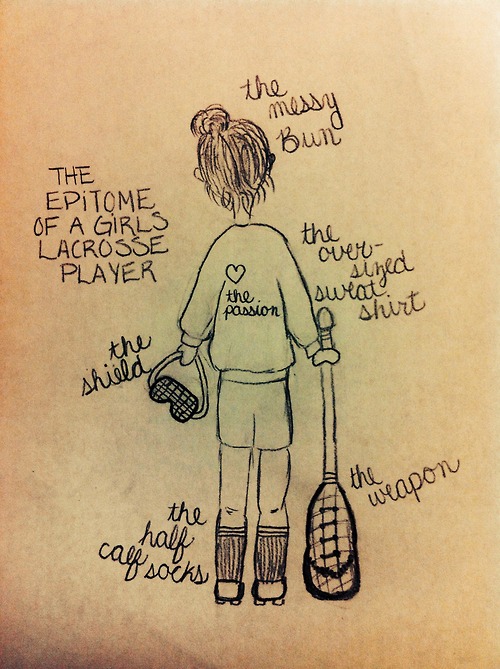 the
messy
Bun
THE
EPiTOME
OF A GiRLS
LACROSSE
PLAYER
the
over-
sized
sweat
shirt
the
passion
the
shield
the
weapon
the
half
calf
socks